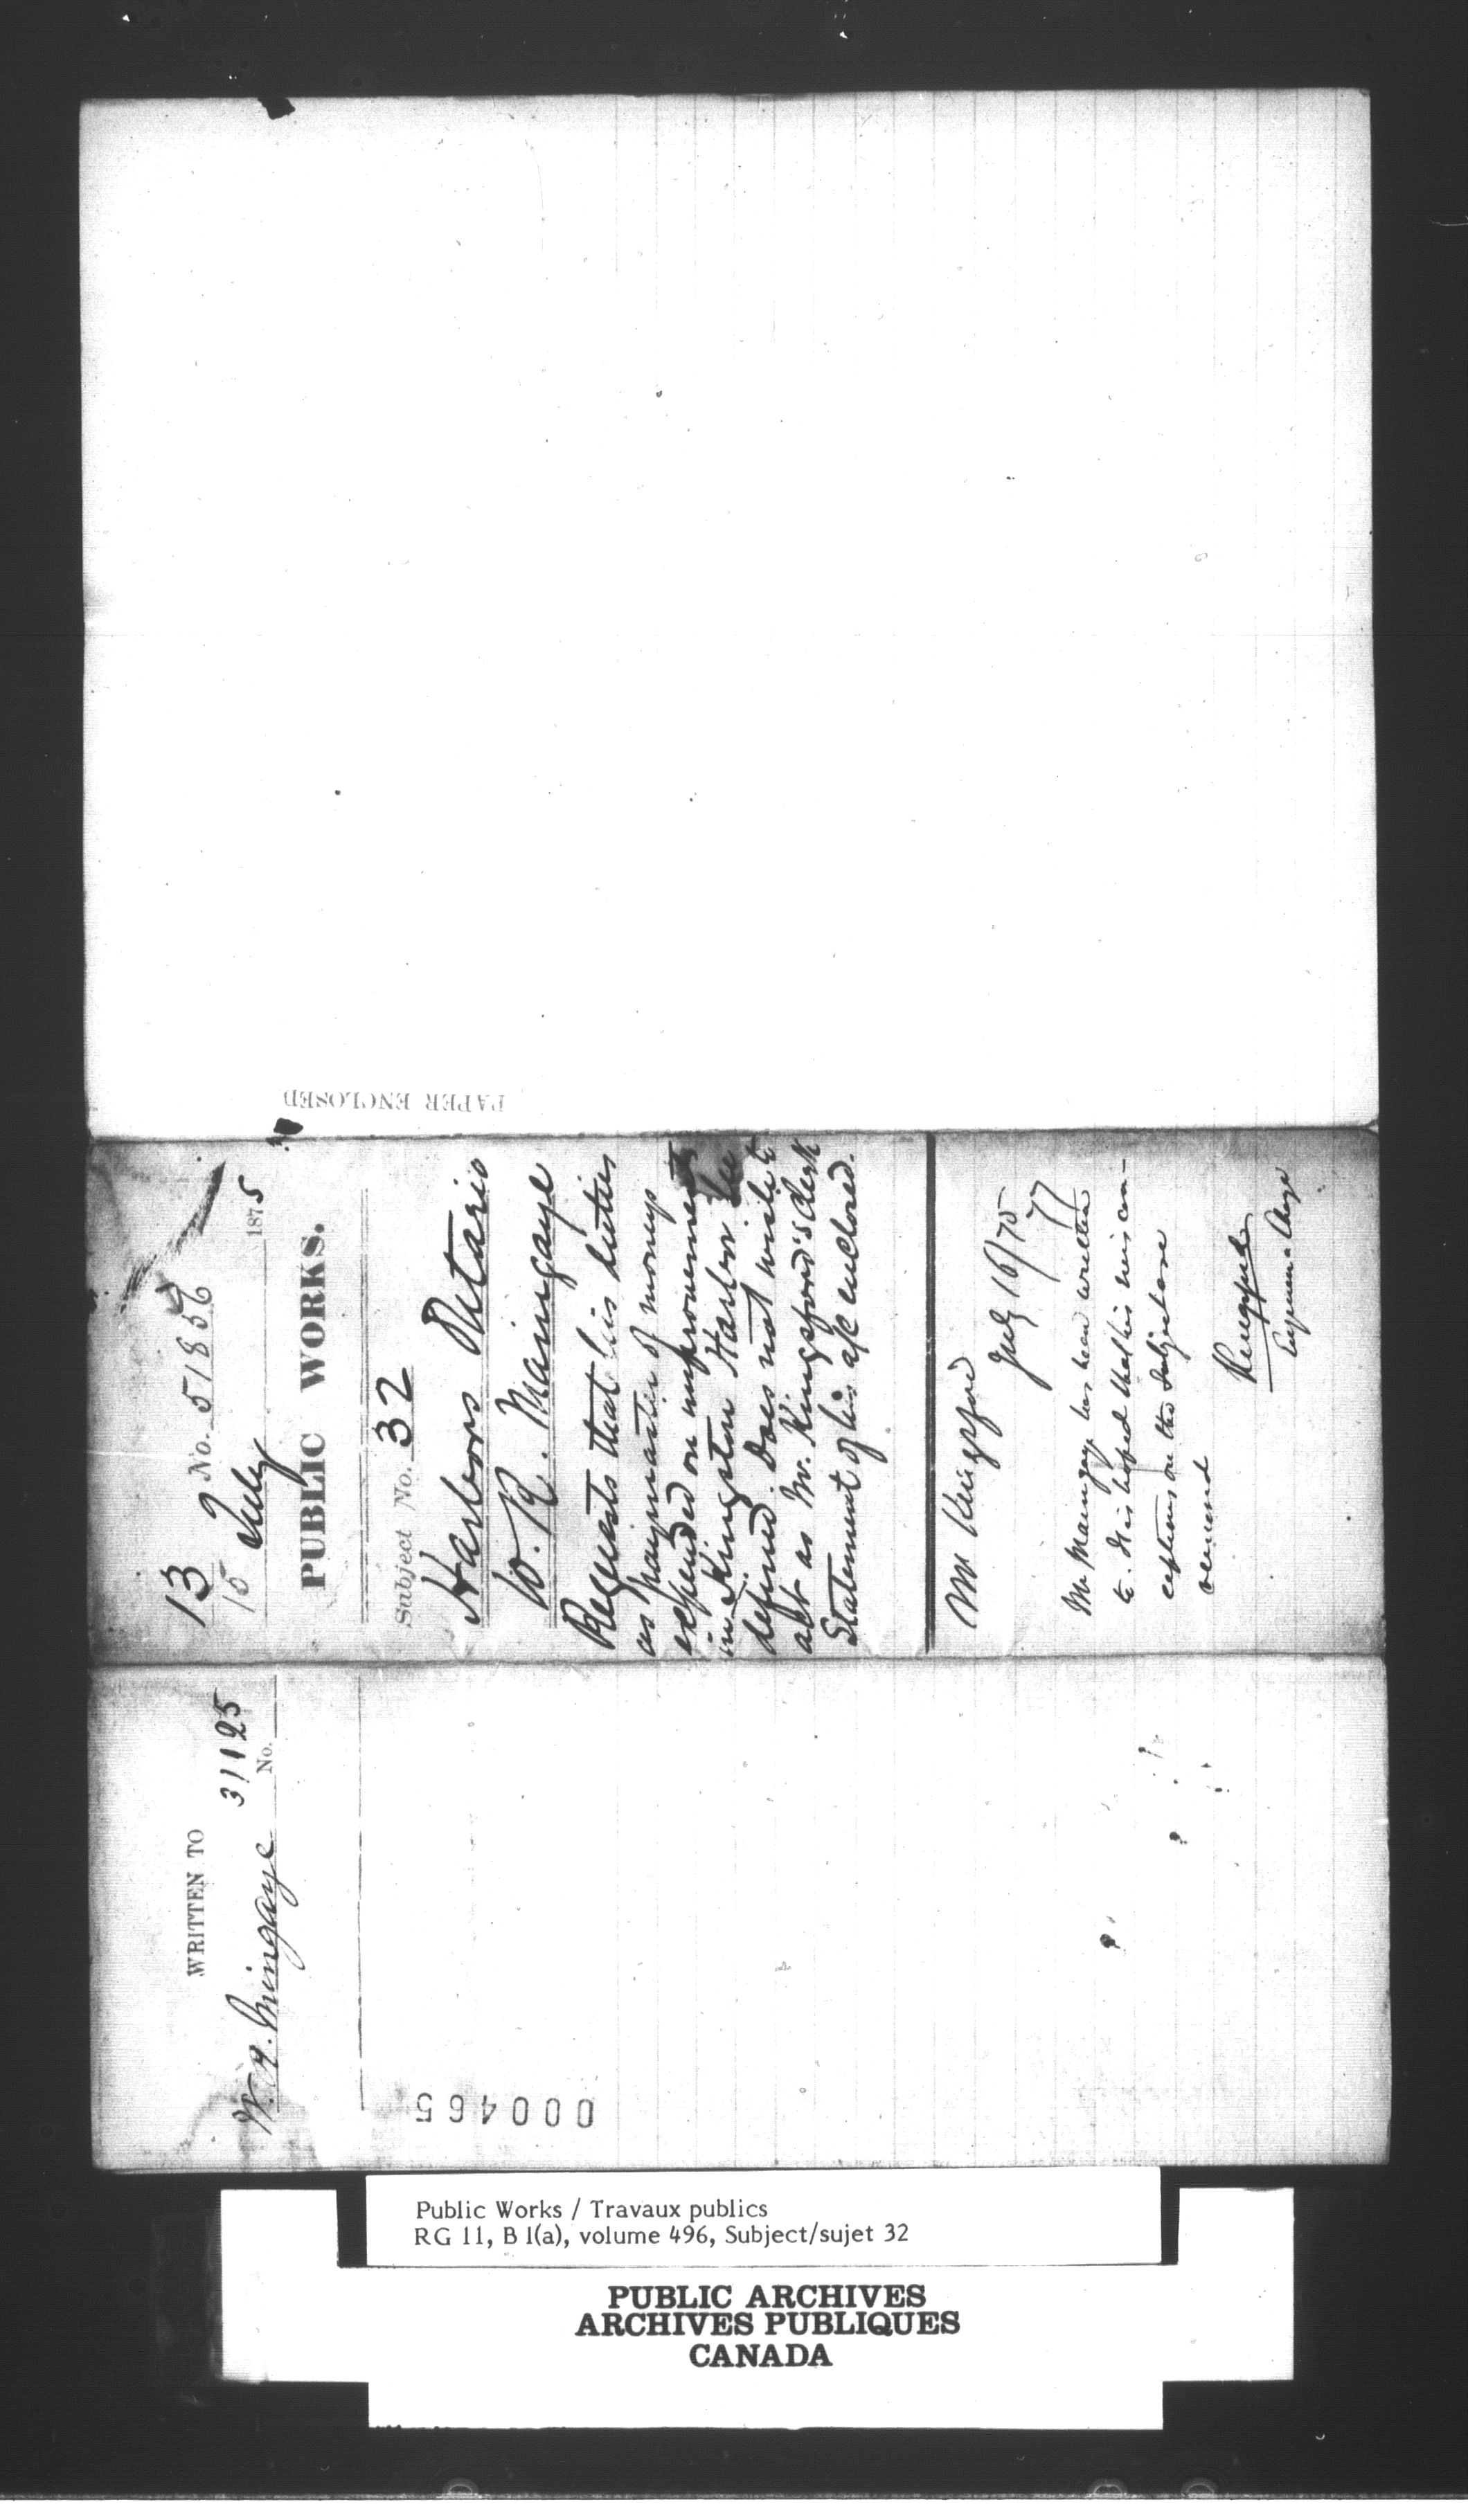 PAPER ENCLOSED
13 No. 51856
15 July 1875
PUBLIC WORKS.
Subject No. 32
Harbors Ontario
W. R. Maingaye
Requests that his duties
as paymaster of moneys
expended on improvements
in Kingston Harbor be
defined. Does not wish to
act as Mr. Kingsford's clerk
Statement of his a/c enclosed.
Mr Kingsford
July 16/75
Mr Maingaye has been written
to. It is hoped that his miscon-
ceptions on the subject are
removed
WRITTEN TO
31125
W. R. Mingaye No.
000465
Public Works / Travaux publics
RG 11, B 1(a), volume 496, Subject/sujet 32
PUBLIC ARCHIVES
ARCHIVES PUBLIQUES
CANADA